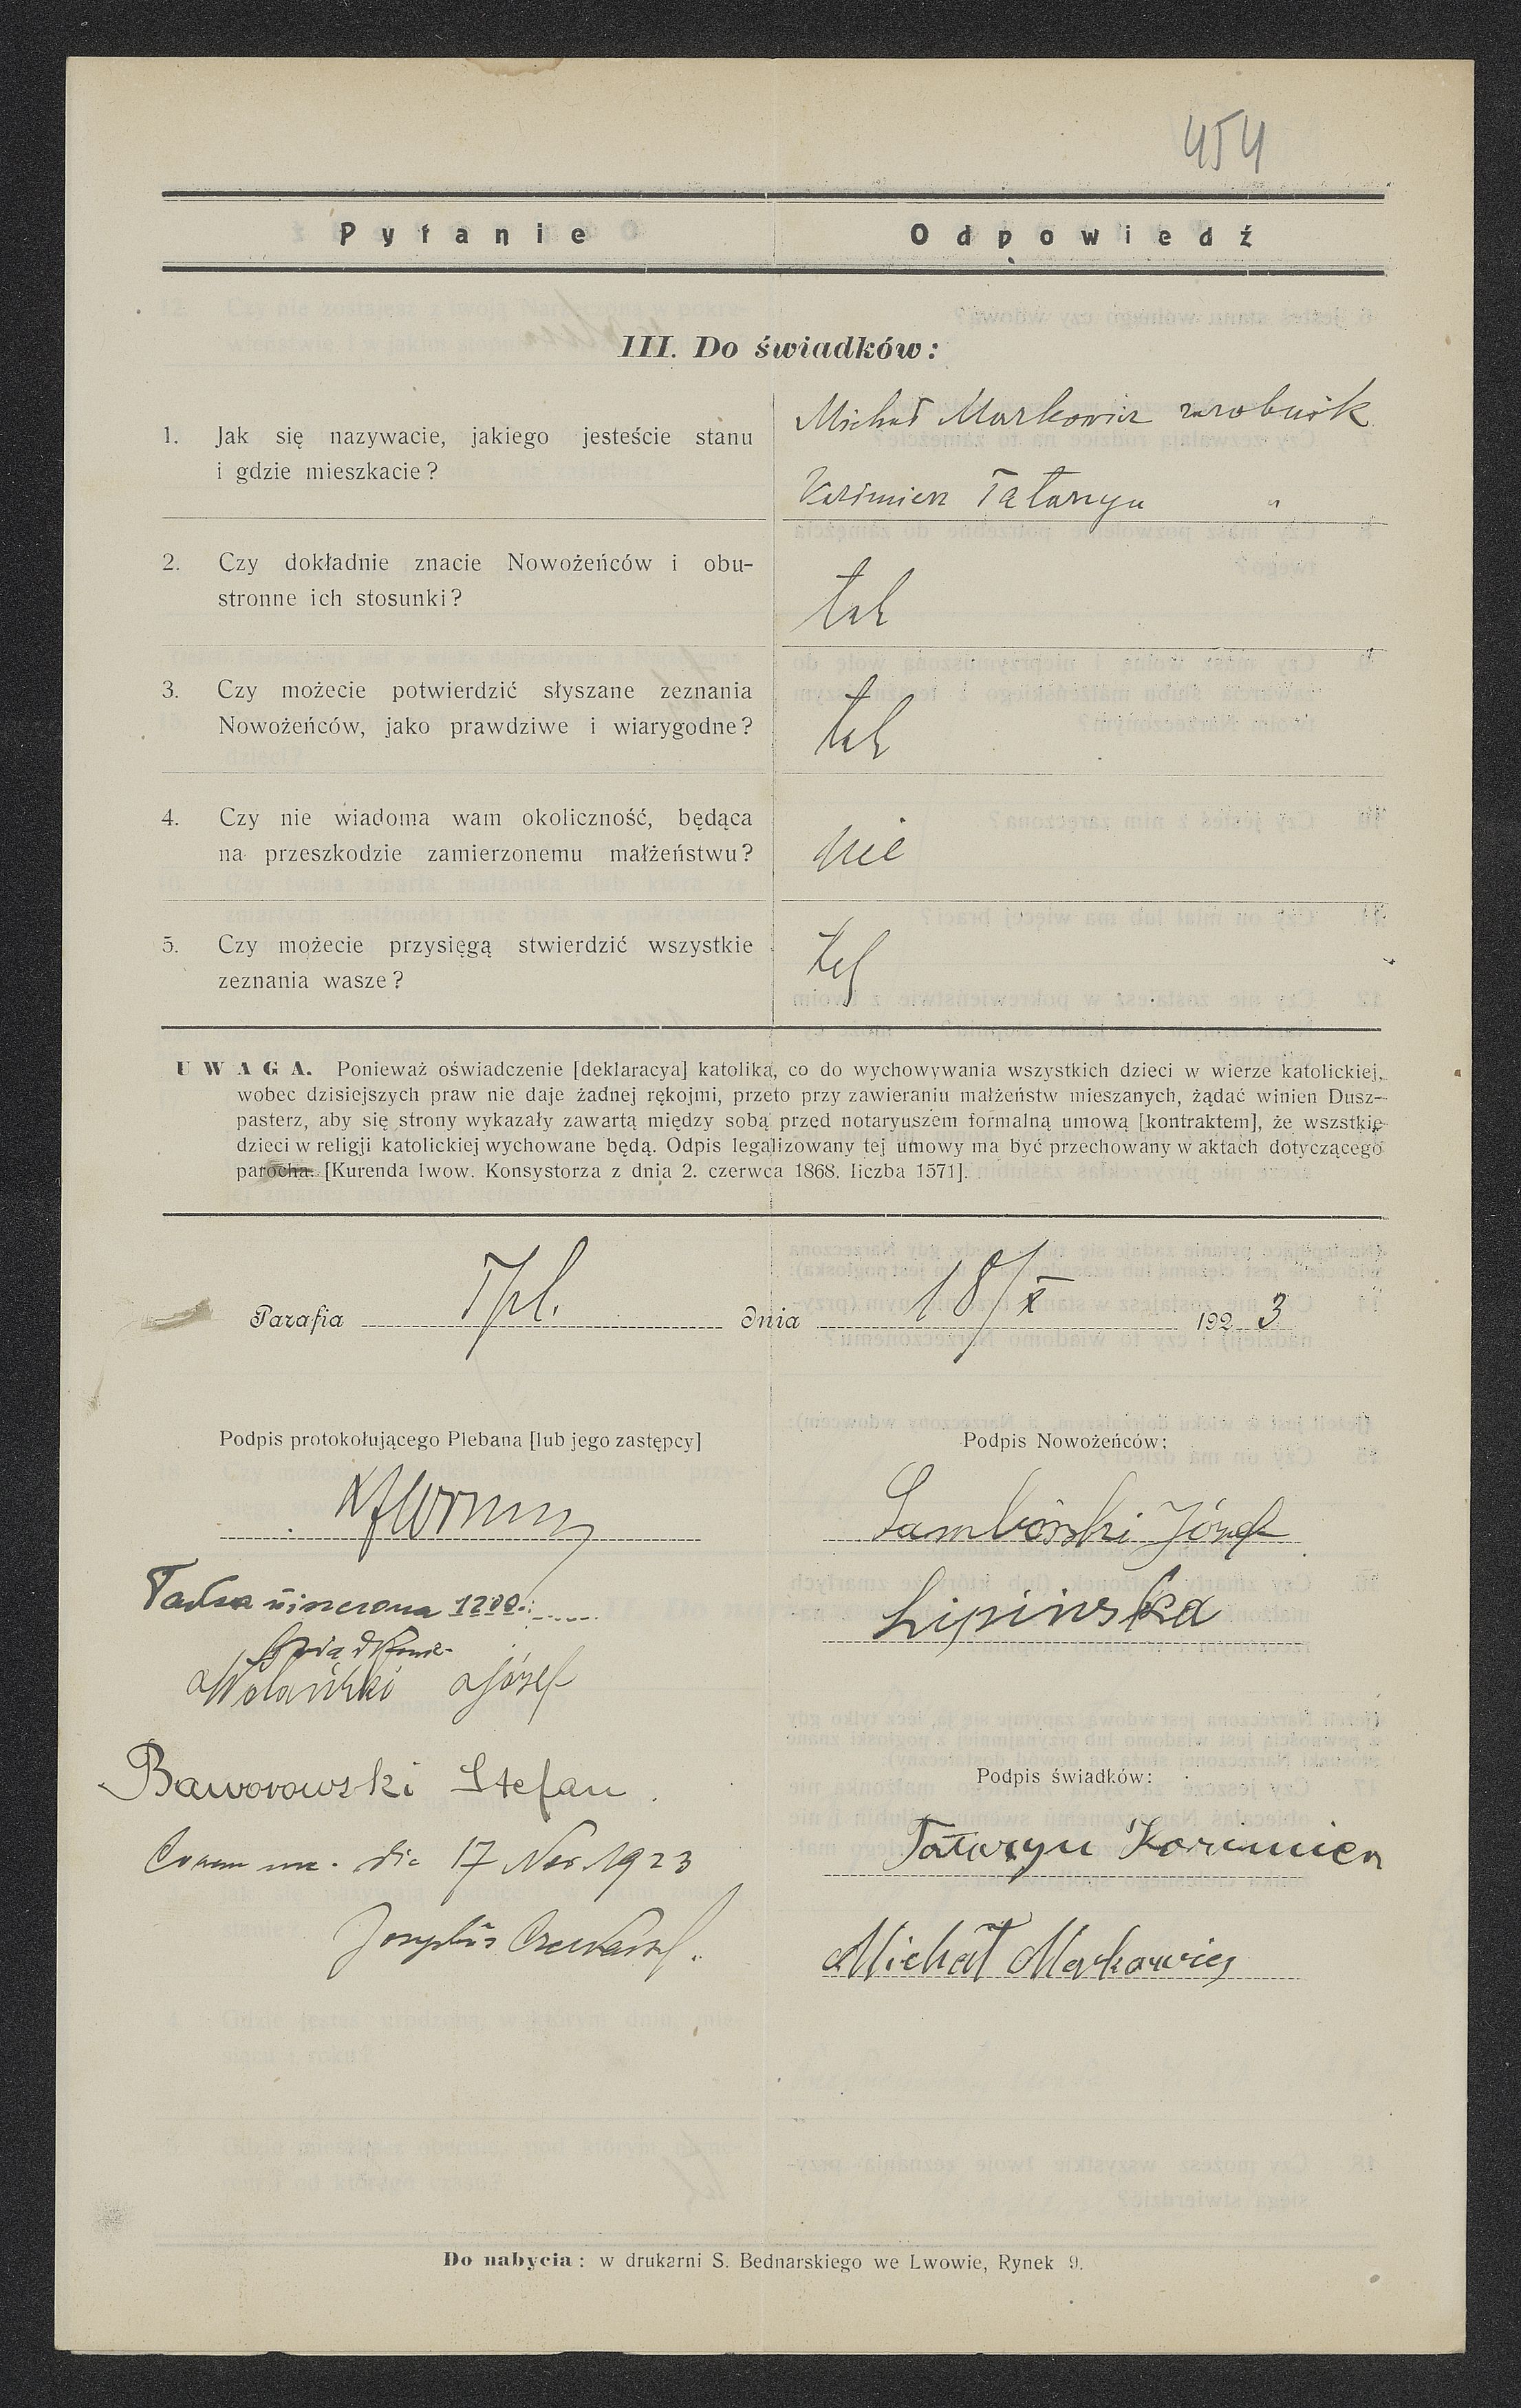 454
Pytanie Odpowiedź
III. Do świadków:
1. Jak się nazywacie, jakiego jesteście stanu
i gdzie mieszkacie?
Michał Markowicz zarobnik
Kazimierz Tataryn "
2. Czy dokładnie znacie Nowożeńców i obu-
stronne ich stosunki?
tak
3. Czy możecie potwierdzić słyszane zeznania
Nowożeńców, jako prawdziwe i wiarygodne?
tak
4. Czy nie wiadoma wam okoliczność, będąca
na przeszkodzie zamierzonemu małżeństwu?
nie
5. Czy możecie przysięgą stwierdzić wszystkie
zeznania wasze?
tak
UWAGA. Ponieważ oświadczenie [deklaracya] katolika, co do wychowywania wszystkich dzieci w wierze katolickiej,
wobec dzisiejszych praw nie daje żadnej rękojmi, przeto przy zawieraniu małżeństw mieszanych, żądać winien Dusz-
pasterz, aby się strony wykazały zawartą między sobą przed notaryuszem formalną umową [kontraktem], że wszstkie
dzieci w religji katolickiej wychowane będą. Odpis legalizowany tej umowy ma być przechowany w aktach dotyczącego
parocha. [Kurenda lwow. Konsystorza z dnia 2. czerwca 1868. liczba 1571].
Parafia Tpl. dnia 18/X 1923
Podpis protokołującego Plebana [lub jego zastępcy]
Podpis Nowożeńców:
Samborski Józef
Lipinska
Taksa uiszczona 1200.
Świadkowie
Wolański Józef
Baworowski Stefan.
Coram me. die 17 Nov. 1923
Josephus
Podpis świadków:
Tataryn Kazimierz
Michał Markowicz
Do nabycia: w drukarni S. Bednarskiego we Lwowie, Rynek 9.